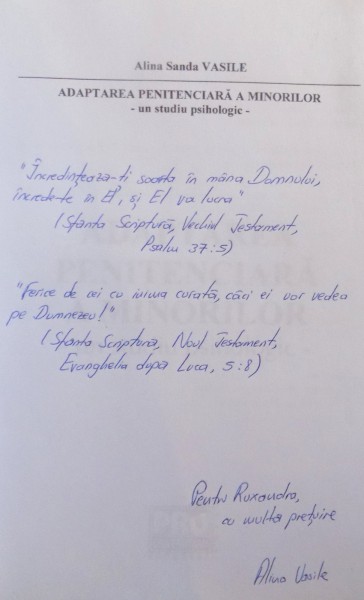 Alina Sanda VASILE
ADAPTAREA PENITENCIARĂ A MINORILOR
- un studiu psihologic -
"Încredinţează-ţi soarta în mâna Domnului,
încrede-te în El, şi El va lucra"
(Sfânta Scriptură, Vechiul Testament,
Psalm 37:5)
"Ferice de cei cu inima curată, căci ei vor vedea
pe Dumnezeu!"
(Sfânta Scriptura, Noul Testament,
Evanghelia după Luca, 5:8)
Pentru Ruxandra,
cu multă preţuire
Alina Vasile